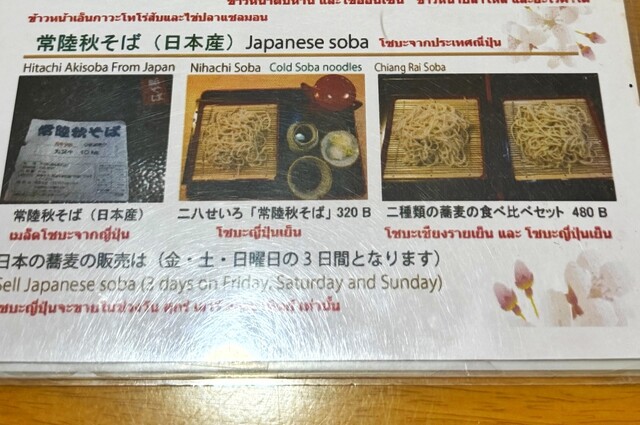 ข้าวหน้าเอ็นกาวะโทโร่ส้มและไข่ปลาแซลมอน
常陸秋そば（日本産）Japanese soba โซบะจากประเทศญี่ปุ่น
Hitachi Akisoba From Japan Nihachi Soba Cold Soba noodles Chiang Rai Soba
常陸秋そば
常陸秋そば（日本産） 二八せいろ「常陸秋そば」320 B 二種類の蕎麦の食べ比べセット 480 B
เมล็ดโซบะจากญี่ปุ่น โซบะญี่ปุ่นเย็น โซบะเชียงรายเย็น และ โซบะญี่ปุ่นเย็น
日本の蕎麦の販売は（金・土・日曜日の3日間となります）
Sell Japanese soba (3 days on Friday, Saturday and Sunday)
โซบะญี่ปุ่นจะขายในช่วงวัน ศุกร์ เสาร์ เท่านั้น